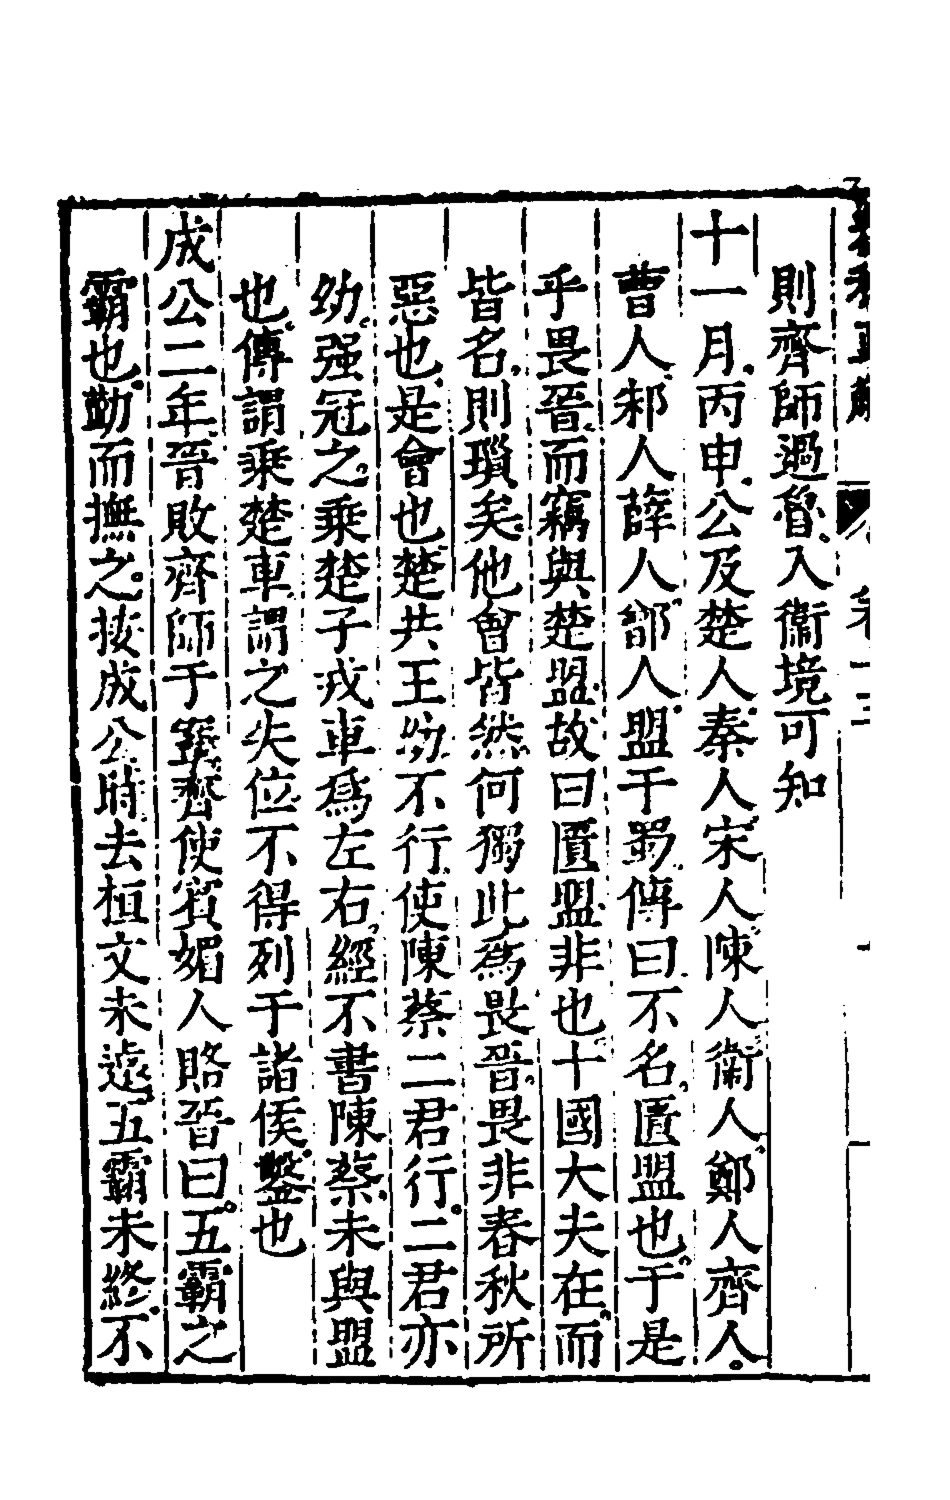 則齊師過魯入衞境可知
十一月丙申公及楚人秦人宋人陳人衞人鄭人齊人
曹人邾人薛人鄫人盟于蜀傳曰不名匱盟也于是
乎畏晉而竊與楚盟故曰匱盟非也十國大夫在而
皆名則瑣矣他會皆然何獨此爲畏晉畏非春秋所
惡也是會也楚共王幼不行使陳蔡二君行二君亦
幼强冠之乘楚子戎車爲左右經不書陳蔡未與盟
也傳謂乘楚車謂之失位不得列于諸侯鑿也
成公二年晉敗齊師于鞌齊使賓媚人賂晉曰五霸之
霸也勤而撫之按成公時去桓文未遠五霸未終不